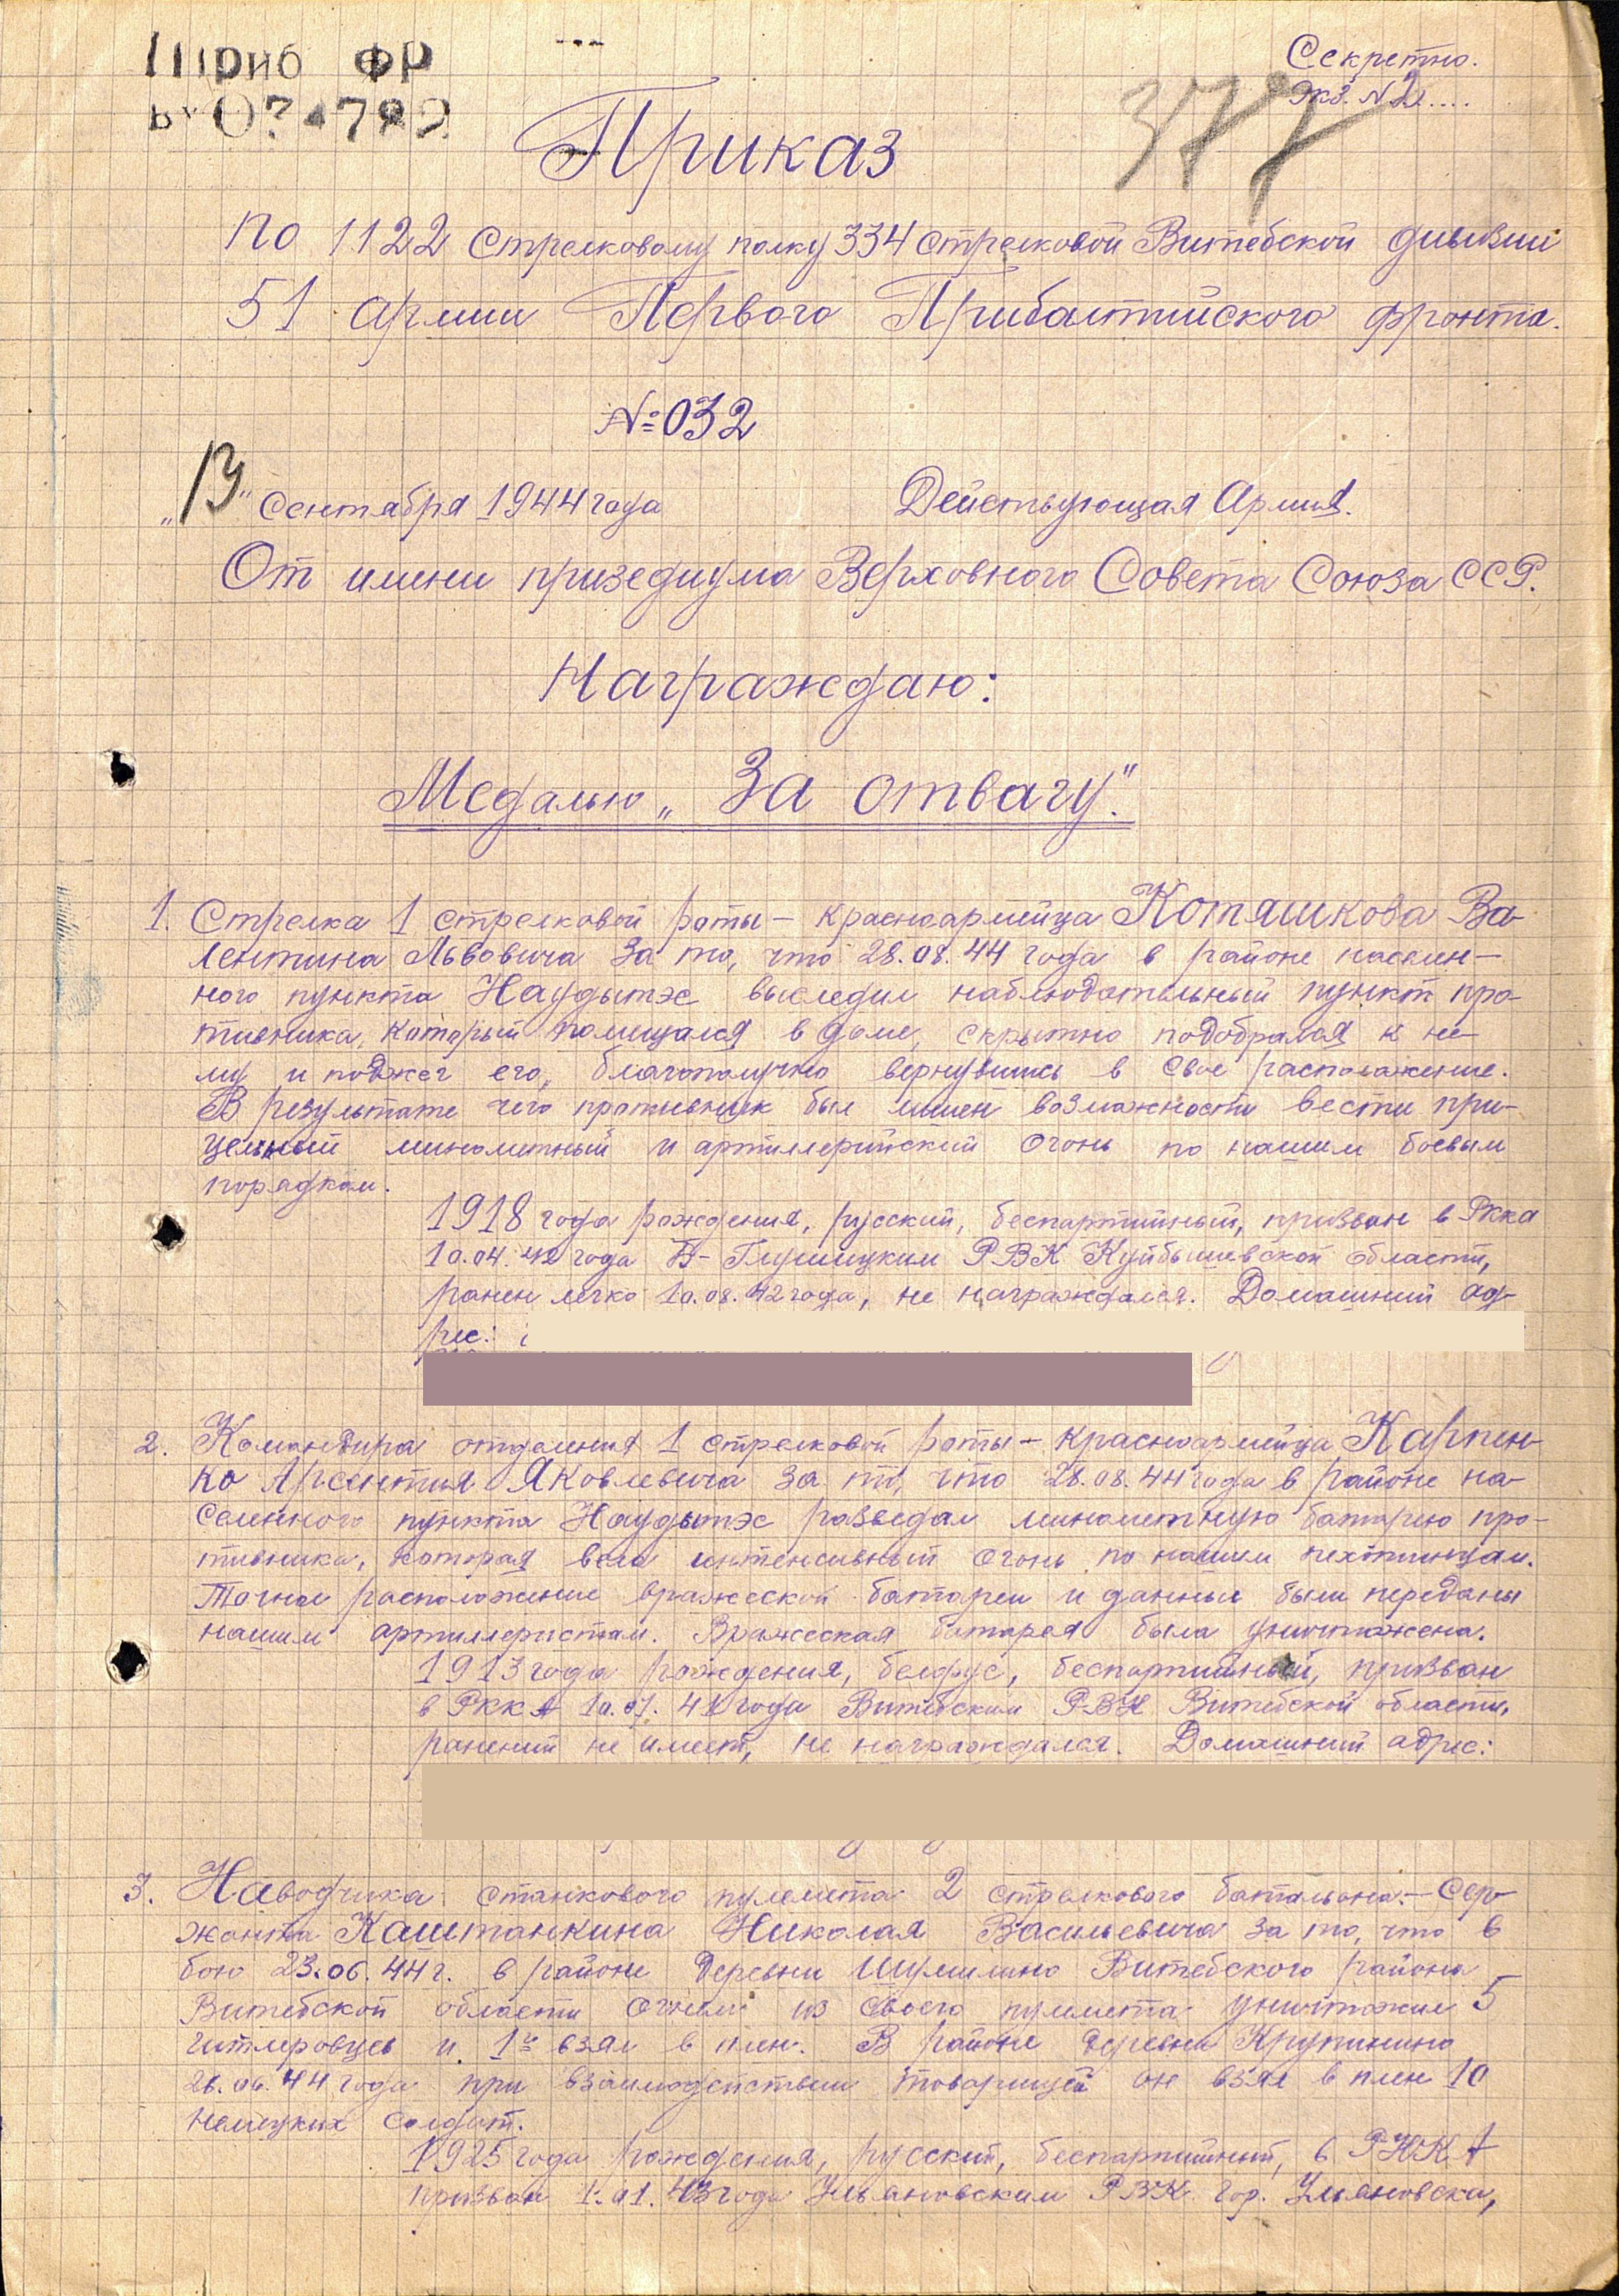 Приб ФР
Секретно.
Экз. N 2....
377
Приказ
по 1122 стрелковому полку 334 стрелковой Витебской дивизии
51 армии Первого Прибалтийского фронта.
№ 032
"13" сентября 1944 года Действующая Армия.
От имени призедиума Верховного Совета Союза ССР.
Награждаю:
Медалью „За отвагу".
1. Стрелка 1 стрелковой роты – красноармейца Котяшкова Ва-
лентина Львовича за то, что 28.08.44 года в районе населен-
ного пункта Наудытэс выследил наблюдательный пункт про-
тивника, который помещался в доме, скрытно подобрался к не-
му и поджег его, благополучно вернувшись в свое расположение.
В результате чего противник был лишен возможности вести при-
цельный минометный и артиллерийский огонь по нашим боевым
порядкам.
1918 года рождения, русский, беспартийный, призван в Ркка
10.04.42 года Б-Глушицким РВК Куйбышевской области,
ранен легко 10.08.42 года, не награждался. Домашний ад-
рес:
2. Командира отделения 1 стрелковой роты – красноармейца Карпен-
ко Арсентия Яковлевича за то, что 28.08.44 года в районе на-
селенного пункта Наудытэс разведал минометную батарею про-
тивника, которая вела интенсивный огонь по нашим пехотинцам.
Точное расположение вражеской батареи и данные были переданы
нашим артиллеристам. Вражеская батарея была уничтожена.
1913 года рождения, белорус, беспартийный, призван
в РККА 10.07.41 года Витебским РВК Витебской области,
ранений не имеет, не награждался. Домашний адрес:
3. Наводчика станкового пулемета 2 стрелкового батальона – сер-
жанта Каштанкина Николая Васильевича за то, что в
бою 23.06.44 г. в районе деревни Шумилино Витебского района
Витебской области огнем из своего пулемета уничтожил 5
гитлеровцев и 1го взял в плен. В районе деревни Крупинино
26.06.44 года при взаимодействии товарищей он взял в плен 10
немецких солдат.
1925 года рождения, русский, беспартийный, в РККА
призван 1.01.43 года Ульяновским РВК гор. Ульяновска,